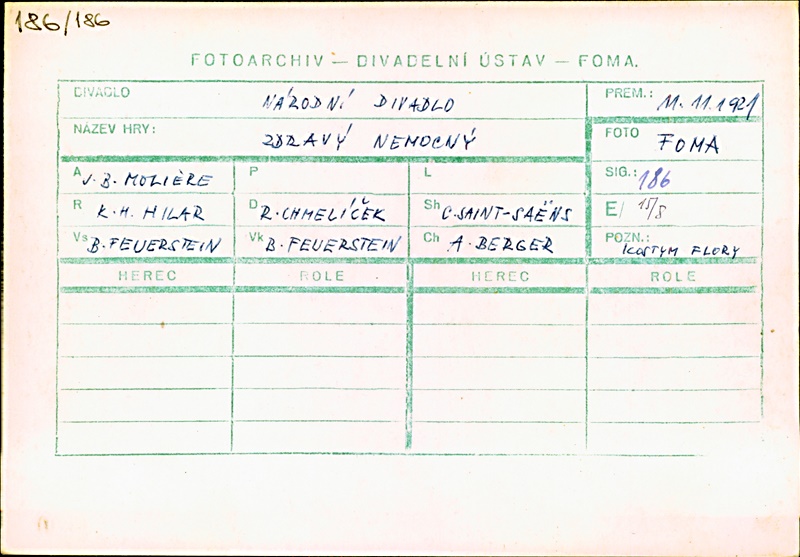 186/186
FOTOARCHIV — DIVADELNÍ ÚSTAV — FOMA.
DIVADLO NÁRODNÍ DIVADLO PREM.: 11.11.1921
NÁZEV HRY: ZDRAVÝ NEMOCNÝ FOTO FOMA
A J.B. MOLIÈRE P L SIG.: 186
R K.H. HILAR D R. CHMELÍČEK Sh C. SAINT-SAËNS E/ 15/8
Vs B. FEUERSTEIN Vk B. FEUERSTEIN Ch A. BERGER POZN.: KOSTYM FLORY
HEREC ROLE HEREC ROLE